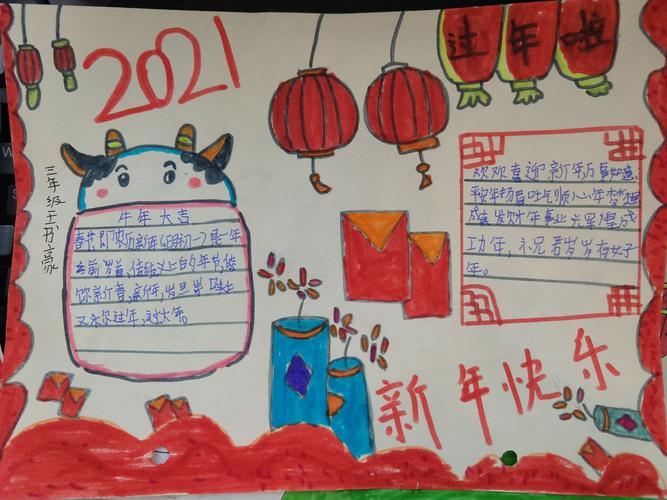 2021
过年啦
三年级王书豪
牛年 大吉
春节即农历新年(正月初一)是一年
之岁首,传统义上的年节,俗
新春,新年,岁旦
又 过年,过大年。
欢欢喜迎新年万事如意
平安年扬眉吐气顺心年梦想
成真发财年事业光辉煌成
功年,祝君岁岁有好
年。
新年快乐